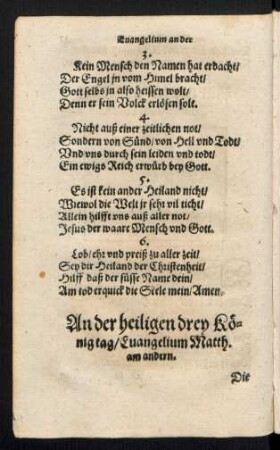 Euangelium an der
3.
Kein Mensch den Namen hat erdacht/
Der Engel jn vom Himel bracht/
Gott selbs jn also heissen wolt/
Denn er sein Volck erlösen solt.
4.
Nicht auß einer zeitlichen not/
Sondern von Sünd/ von Hell vnd Todt/
Vnd vns durch sein leiden vnd todt/
Ein ewigs Reich erwürb bey Gott.
5.
Es ist kein ander Heiland nicht/
Wiewol die Welt jr sehr vil ticht/
Allein hilfft vns auß aller not/
Jesus der waare Mensch vnd Gott.
6.
Lob/ ehr vnd preiß zu aller zeit/
Sey dir Heiland der Christenheit/
Hilff daß der süsse Name dein/
Am tod erquick die Seele mein/ Amen.
An der heiligen drey Kö-
nig tag/ Euangelium Matth.
am andern.
Die